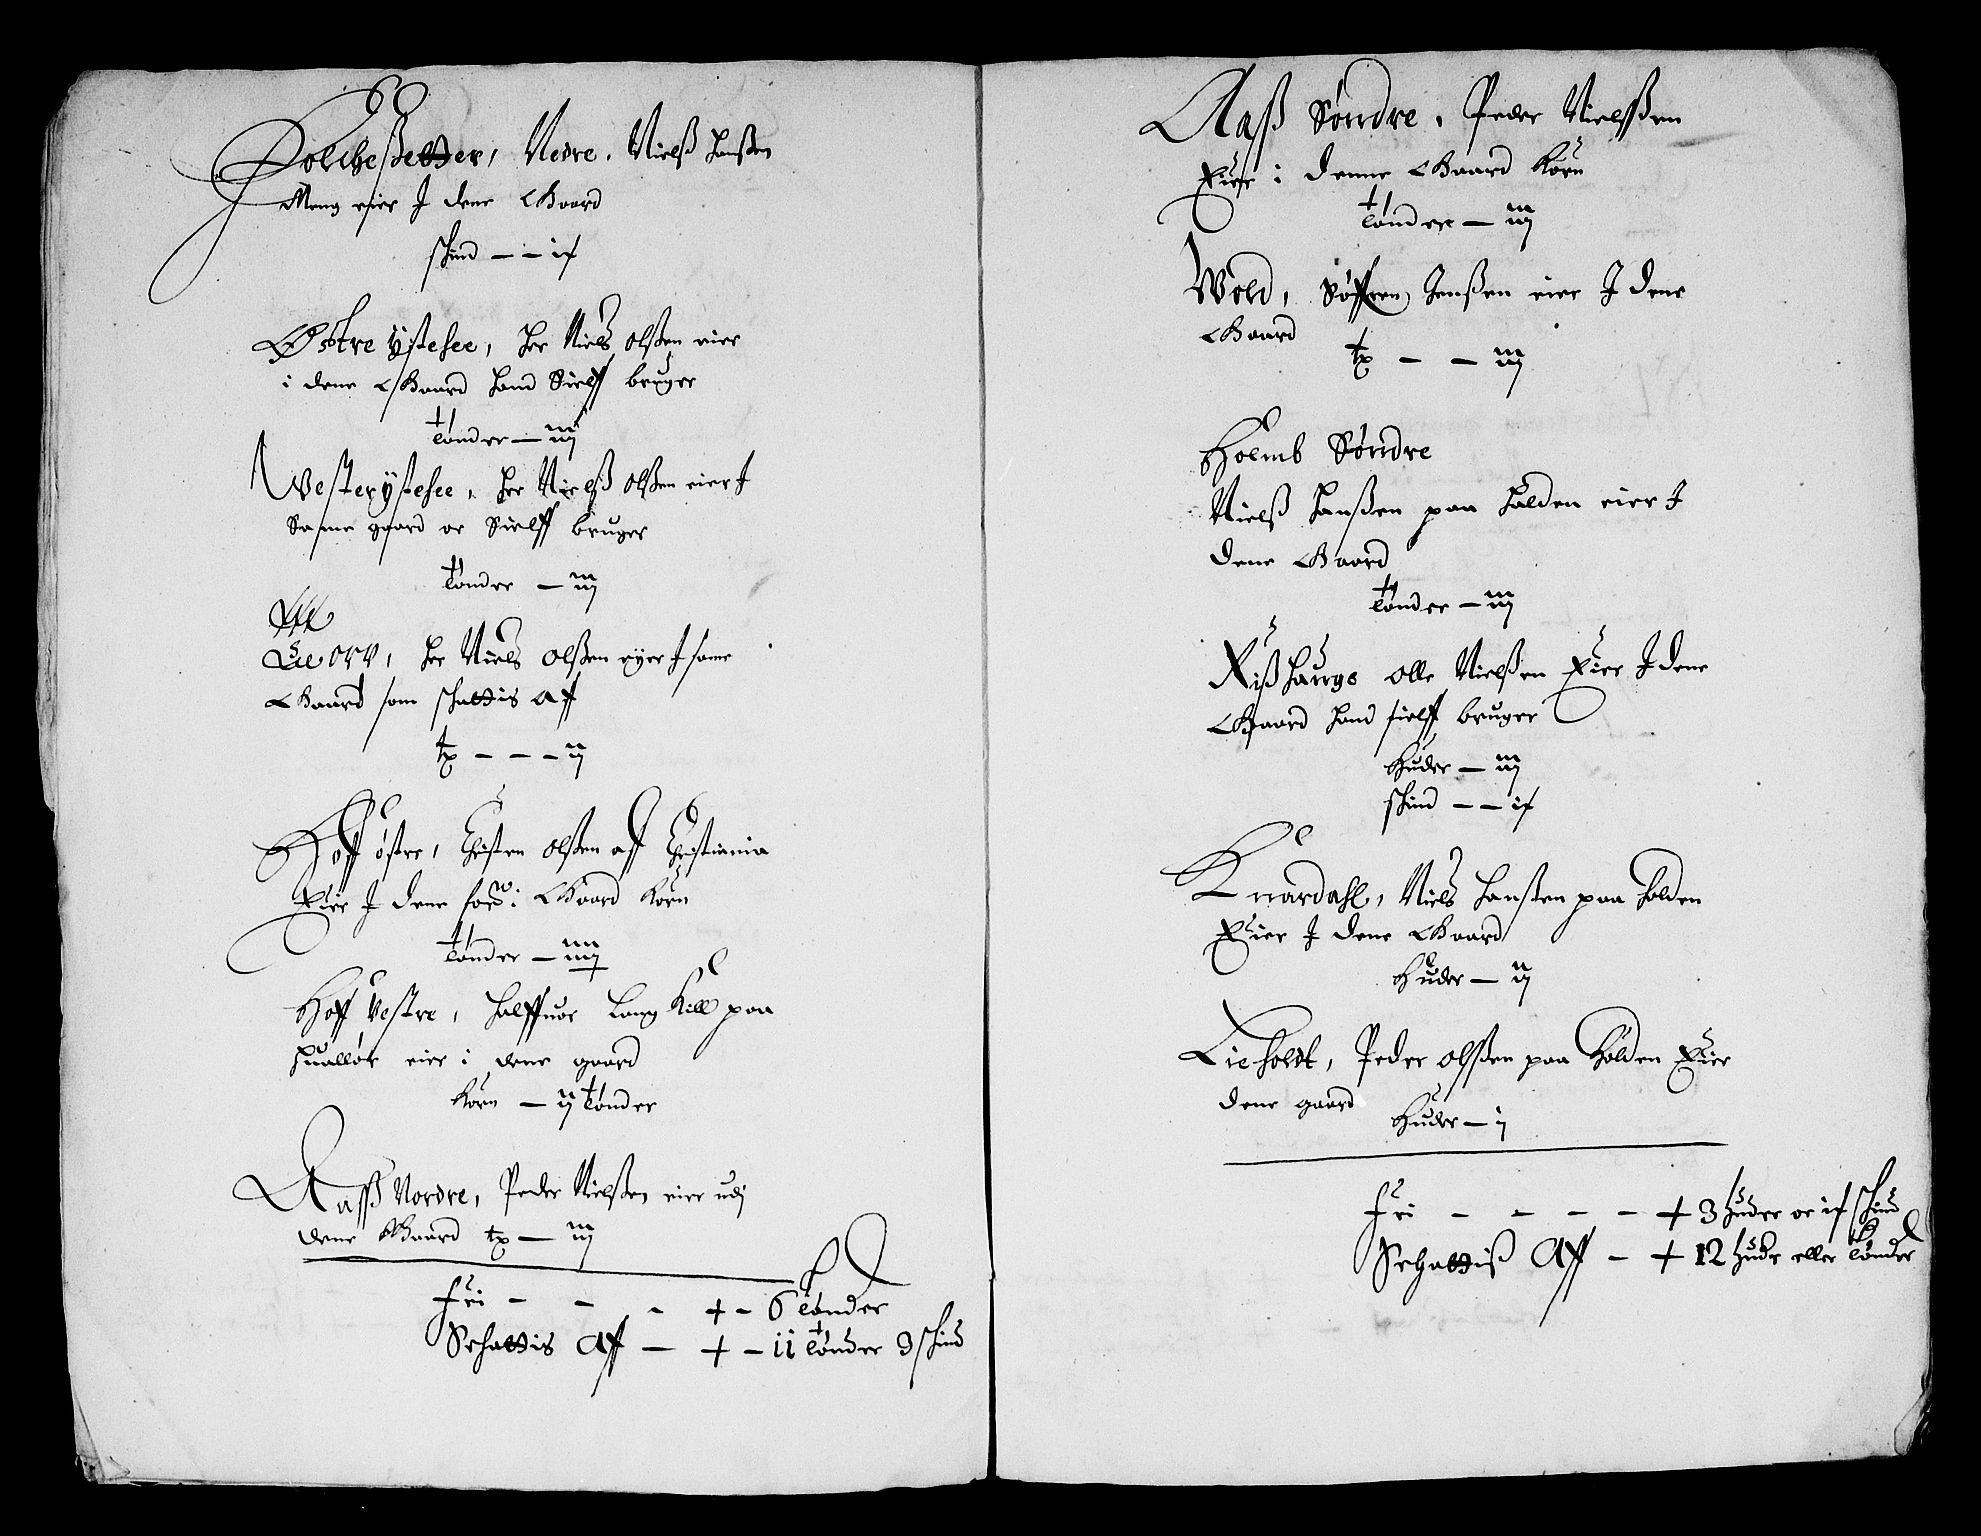 Holtheßetter, Nedre. Nielß Hanßen
Meng eier J dene Gaard
skind — — i½
Østre ÿstesee, her Niels Olßen eier
i dene Gaard hand Sielff bruger
tønder — iij
Vesterÿstesee, her Nielß Olßen eier J
Same gaard oc Sielff bruger
tønder — iij
her Niels Olßen eyer J same
Gaard som schattis aff
tø — — — ij
Hoff østre, Christen Olßen aff Christiania
Eier J dene Gaard Korn
tønder — iiij
Hoff Vestre, Halffuor Langkill paa
eier i dene gaard
Korn — ij tønder
Aaß Nordre, Peder Nielßen eier udj
dene Gaard tø — iij
Fri — — — + — 6 tønder
Schattis Aff — + — 11 tønder 3 skind
Aaß Søndre, Peder Nielßen
Eier i denne Gaard Korn
tønder — iij
Wold, Søffren Jenßen eier J dene
Gaard
tø — — iij
Holmb Søndre
Nielß Hanßen paa Holden eier J
dene Gaard
tønder — iij
Rißhauge Olle Nielßen Eier J dene
Gaard hand sielff bruger
Huder — iij
skind — — i½
Knardahl, Niels Hanßen paa Holden
Eier J dene Gaard
Huder — ij
Lieholdt, Peder Olßen paa Holden Eier
dene gaard
Huder — j
Fri — — — — + 3 Huder oc i½ skind
Schattiß Aff — + 12 hude eller tønder